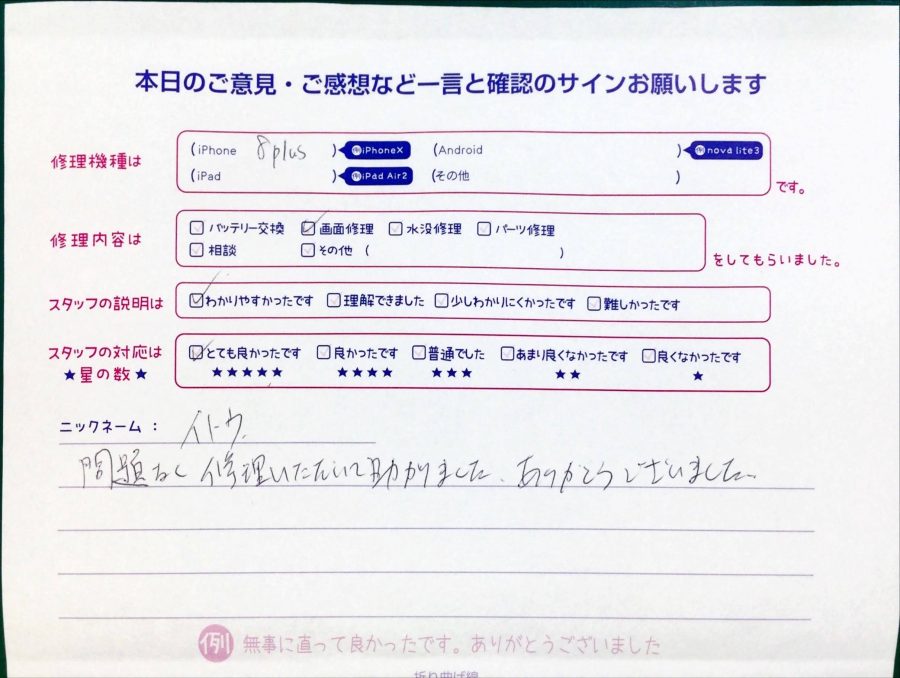 本日のご意見・ご感想など一言と確認のサインお願いします
修理機種は
(iPhone 8plus ) 例iPhoneX (Android ) 例nova lite3
(iPad ) 例iPad Air2 (その他 )
です。
修理内容は
バッテリー交換 画面修理 水没修理 パーツ修理
相談 その他 ( )
をしてもらいました。
スタッフの説明は
わかりやすかったです 理解できました 少しわかりにくかったです 難しかったです
スタッフの対応は
★星の数★
とても良かったです 良かったです 普通でした あまり良くなかったです 良くなかったです
★★★★★ ★★★★ ★★★ ★★ ★
ニックネーム： イトウ
問題なく修理いただいて助かりました、ありがとうございました。
例 無事に直って良かったです。ありがとうございました
折り曲げ線